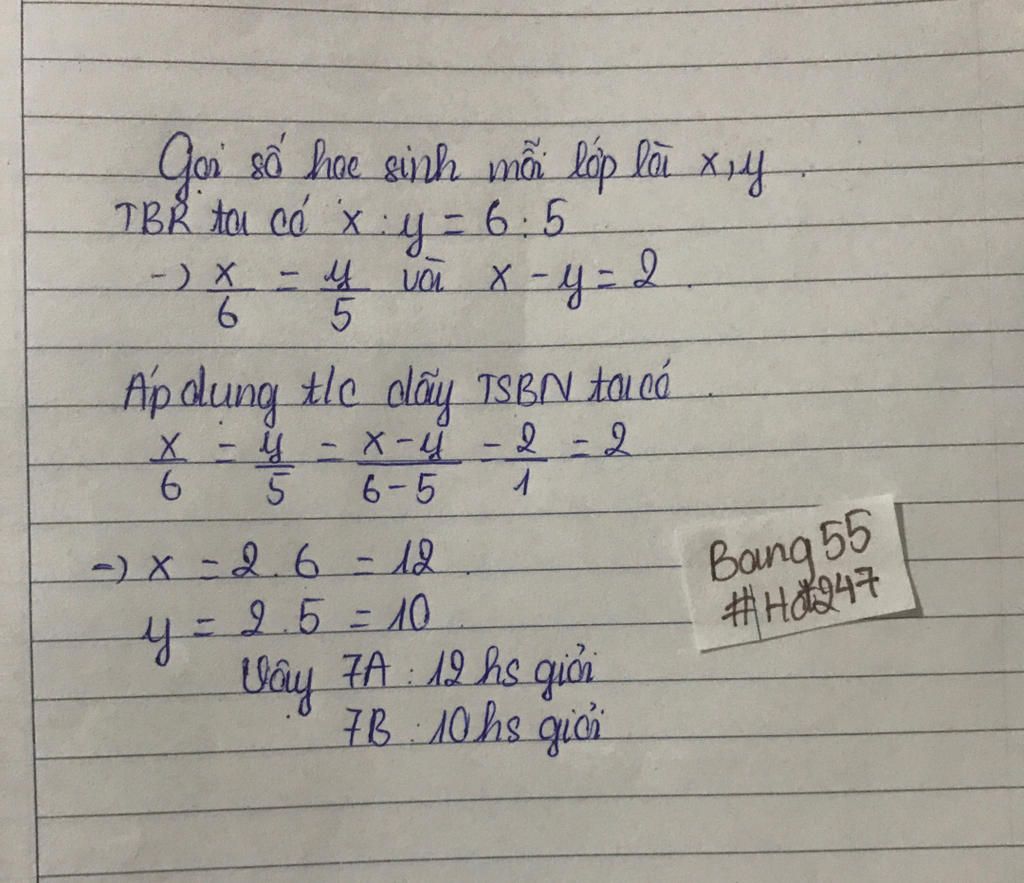 Gọi số học sinh mỗi lớp là x, y.
TBR ta có x : y = 6 : 5
-) x/6 = y/5 và x - y = 2.
Áp dụng t/c dãy TSBN ta có.
x/6 = y/5 = x-y/6-5 = 2/1 = 2
-) x = 2.6 = 12.
y = 2.5 = 10.
Vậy 7A : 12 hs giỏi
7B : 10 hs giỏi
Bang55